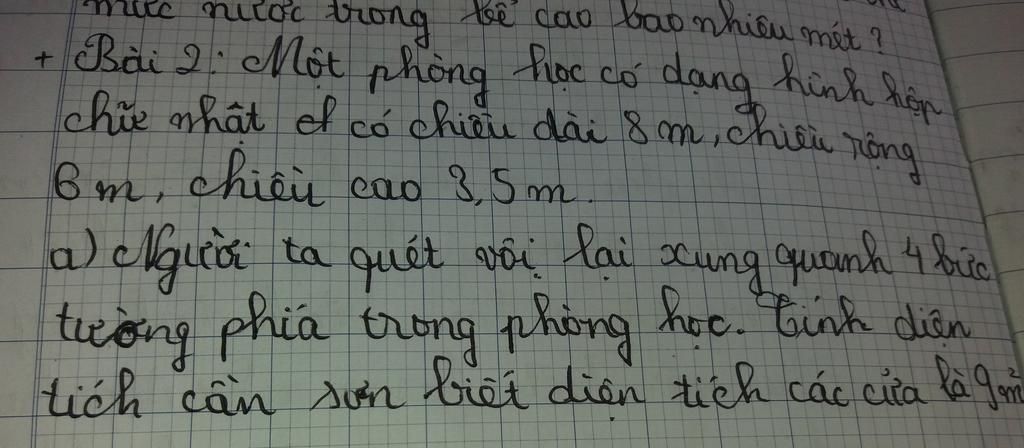 mức nước trong bể cao bao nhiêu mét?
+ Bài 2: Một phòng học có dạng hình hộp
chữ nhật có chiều dài 8 m, chiều rộng
6 m, chiều cao 3,5 m.
a) Người ta quét vôi lại xung quanh 4 bức
tường phía trong phòng học. Tính diện
tích cần sơn biết diện tích các cửa là 9m²